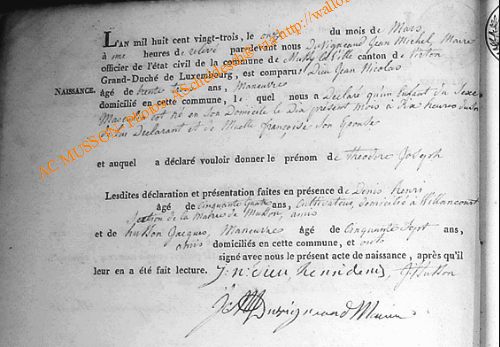 L'AN mil huit cent vingt-trois, le onze du mois de Mars
à une heures de relevé par devant nous Duvigneaud Jean Michel, Maire
officier de l'état civil de la commune de Mussy la Ville canton de Virton
Grand-Duché de Luxembourg, est comparu Dieu Jean Nicolas
NAISSANCE.
âgé de trente ans Manœuvre
domicilié en cette commune, lequel nous a Déclaré qu'un Enfant du Sexe
Masculin est né en Son Domicile le Dix présent mois à Six heures du Soir
Déclarant et de Muelle Françoise Son Epouse
et auquel a déclaré vouloir donner le prénom de Theodore Joseph
Lesdites déclaration et présentation faites en présence de Denis Henri
âgé de Cinquante Quatre ans, Cultivateur, domicilié à Willancourt
Section de la Mairie de Musson, amis
et de Husson Jacques, Manœuvre âgé de Cinquante Sept ans,
amis domiciliés en cette commune, et ont
signé avec nous le présent acte de naissance, après qu'il
leur en a été fait lecture. J. n. Dieu, henri denis, J. husson
Duvigneaud Maire
AC MUSSON http://wallo